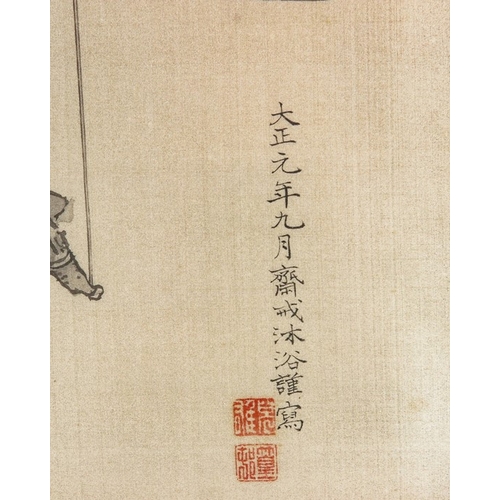 大正元年九月齋戒沐浴謹寫